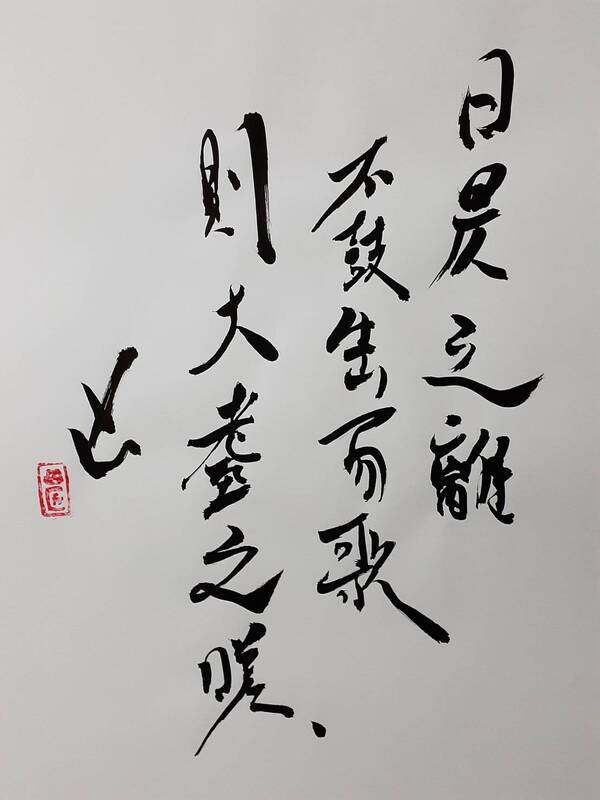 日昃之離
不鼓缶而歌
則大耋之嗟、
凶